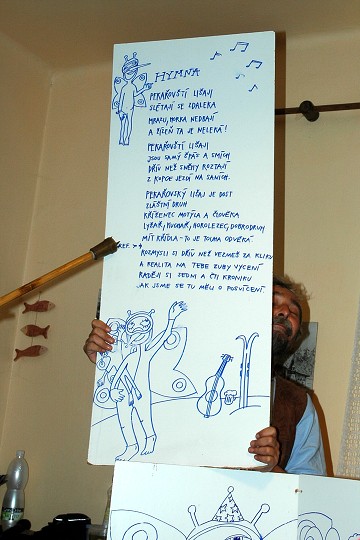 HYMNA
PEKAŘOVŠTÍ LIŠAJI
SLÉTAJÍ SE ZDALEKA
MRAZU, HORKA NEDBAJÍ
A ŽÍZEŇ TA JE NELEKÁ!
PEKAŘOVŠTÍ LIŠAJI
JSOU SAMÝ ŠPÁS A SMÍCH
DŘÍV NEŽ SNĚHY ROZTAJÍ
Z KOPCE JEZDÍ NA SANÍCH.
PEKAŘOVSKÝ LIŠAJ JE DOST
ZLÁŠTNÍ DRUH
KŘÍŽENEC MOTÝLA A ČLOVĚKA
LYŽAŘ, KUCHAŘ, HOROLEZEC, DOBRODRUH
MÍT KŘÍDLA - TO JE TOUHA ODVĚKÁ
ROZMYSLI SI DŘÍV NEŽ VEZMEŠ ZA KLIKU
A REALITA NA TEBE ZUBY VYCENÍ
RADĚJI SI SEDNI A ČTI KRONIKU
JAK JSME SE TU MĚLI O POSVÍCENÍ